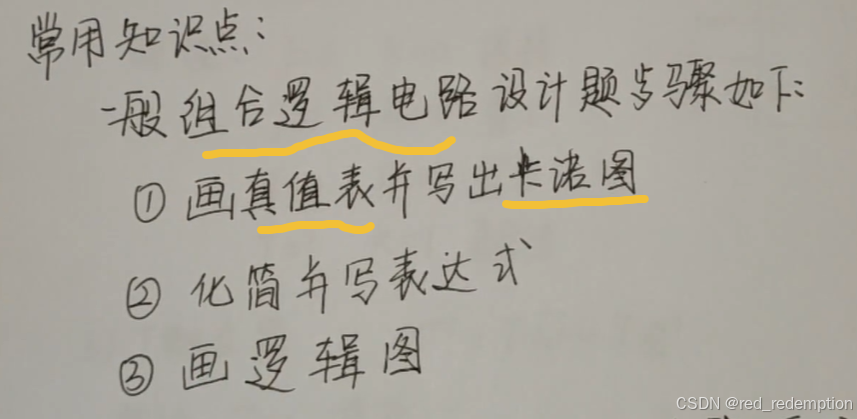 常用知识点：
一般组合逻辑电路设计题步骤如下：
① 画真值表并写出卡诺图
② 化简并写表达式
③ 画逻辑图
CSDN @red_redemption